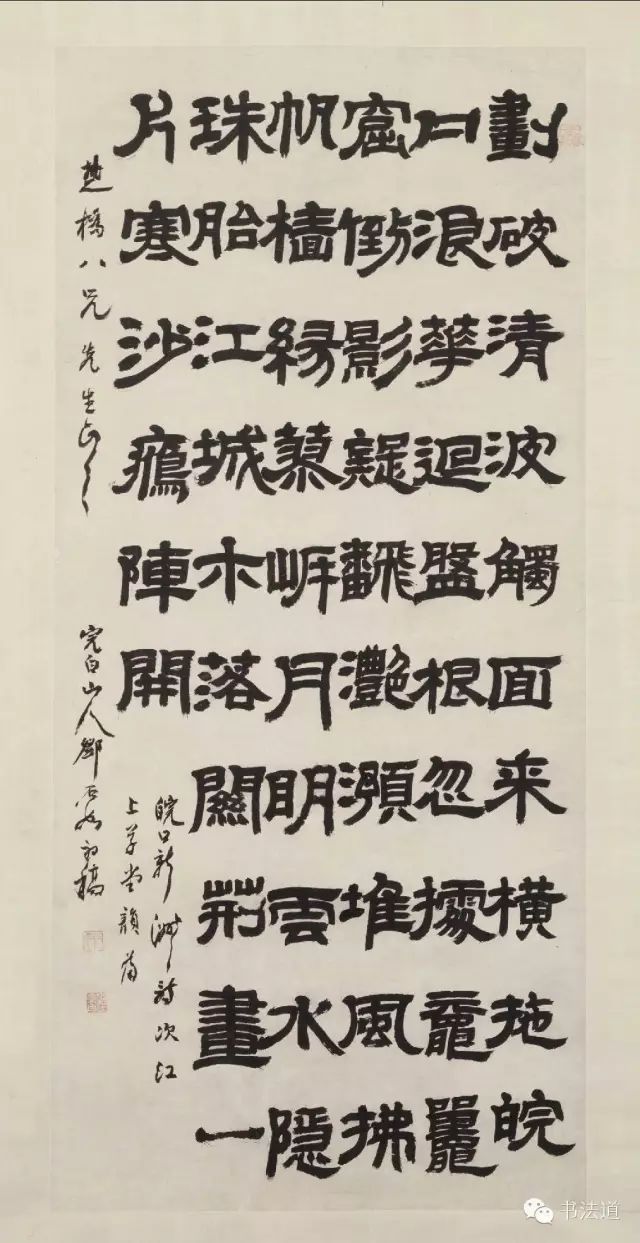 劃破清波觸面来橫拖皖
口浪華迴盤根忽據黿鼉
窟倒影疑飜灩澦堆風拂
帆檣緣岸月明雲水隱
珠胎江城木落關荆畫一
片寒沙鴈陣開
皖口新洲詩次江
上草堂韻為
楚橋八兄先生正之
完白山人鄧石如初稿
书法道